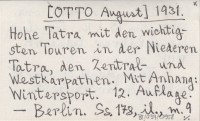 [OTTO August] 1931.
Hohe Tatra mit den wichtig-
sten Touren in der Niederen
Tatra, den Zentral- und
Westkarpathen. Mit Anhang:
Wintersport. 12. Auflage.
— Berlin. Ss. 178, il., m. 9